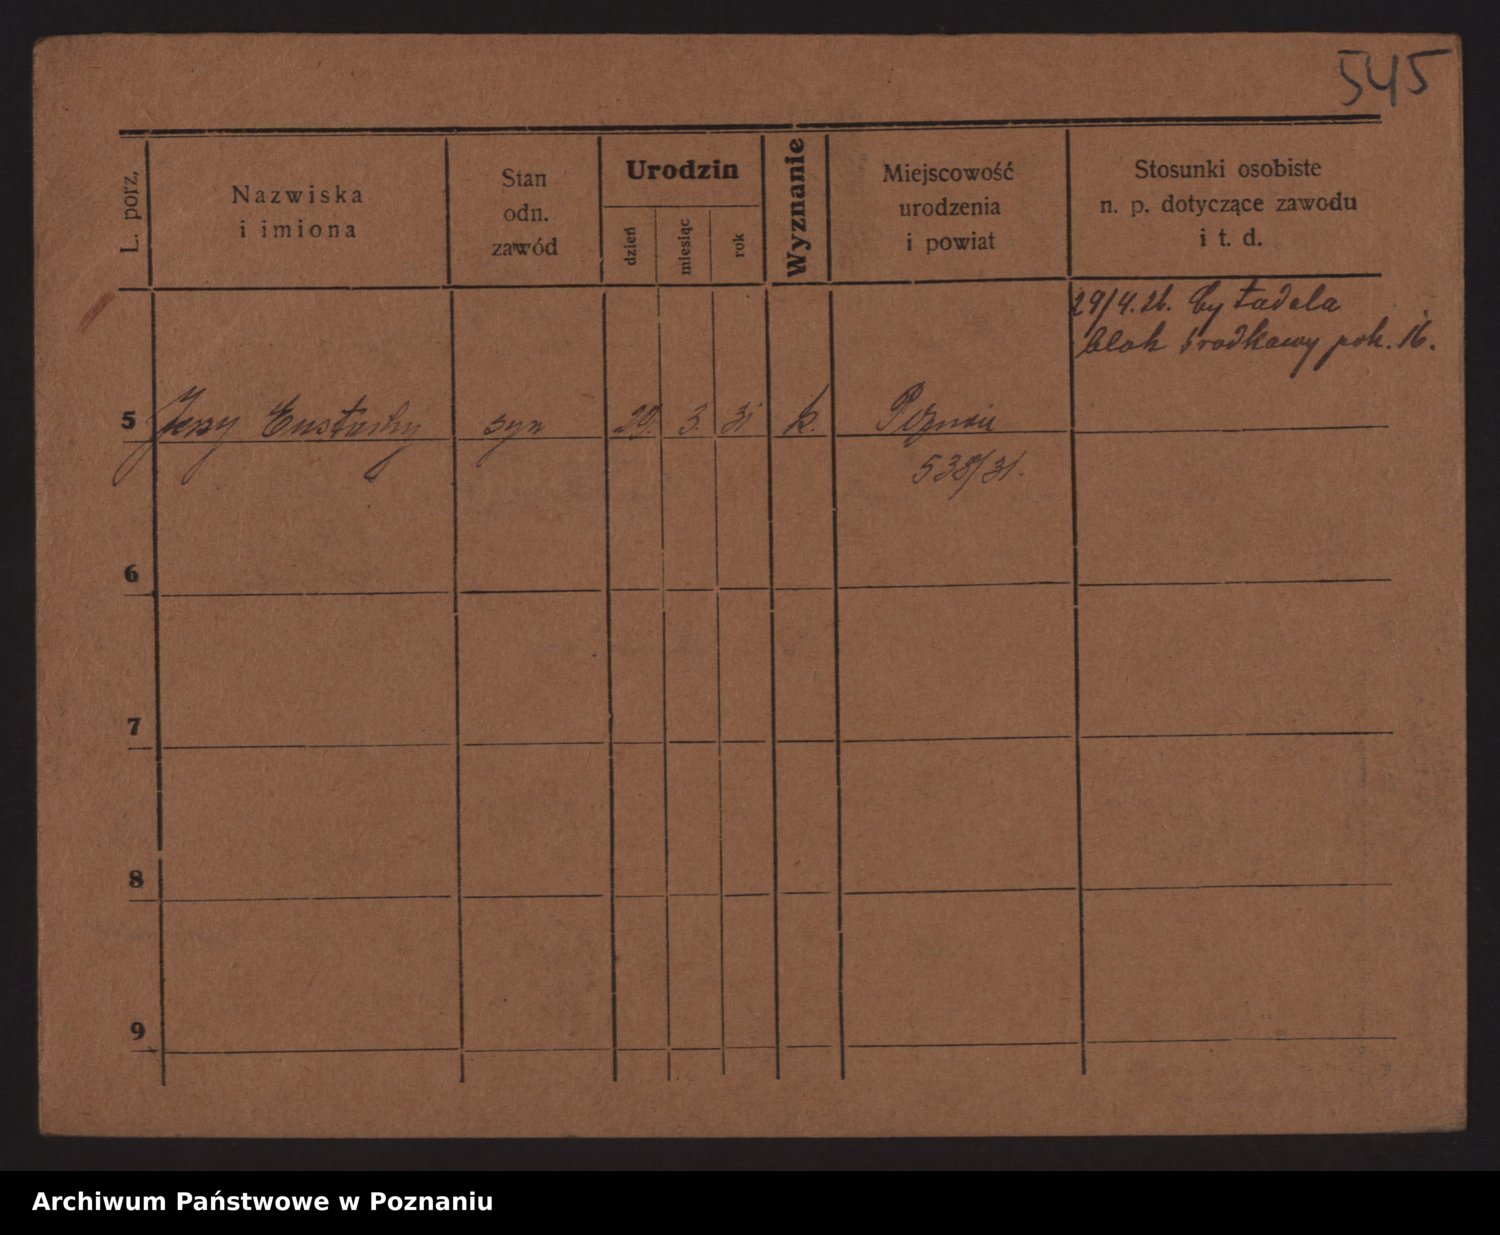 545
L. porz,
Nazwiska
i imiona
Stan
odn.
zawód
Urodzin
dzień
miesiąc
rok
Wyznanie
Miejscowość
urodzenia
i powiat
Stosunki osobiste
n. p. dotyczące zawodu
i t. d.
29/4.26. Cytadela
blok środkowy pok. 16.
5 Jerzy Eustachy syn 29. 3. 31 k. Poznań
538/31.
6
7
8
9
Archiwum Państwowe w Poznaniu